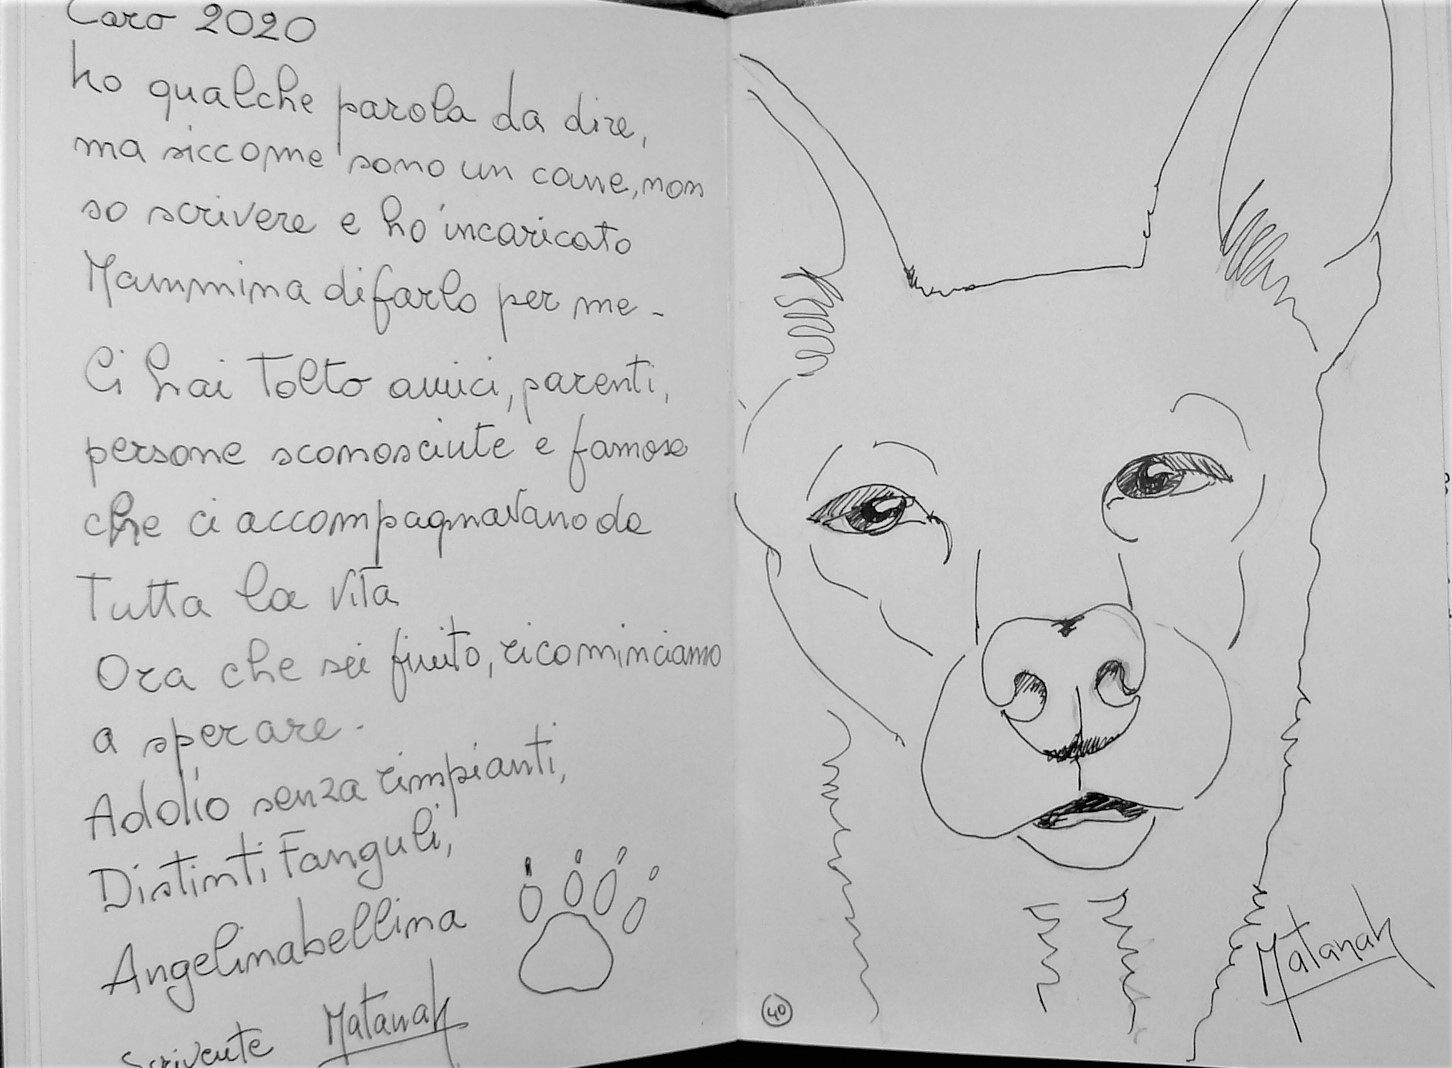 Caro 2020
ho qualche parola da dire,
ma siccome sono un cane, non
so scrivere e ho incaricato
Mammina di farlo per me -
Ci hai tolto amici, parenti,
persone sconosciute e famose
che ci accompagnavano da
Tutta la vita
Ora che sei finito, ricominciamo
a sperare.
Adolio senza rimpianti,
Distinti Fanguli,
Angelinabellina
Scrivente Matanah
40
Matanah